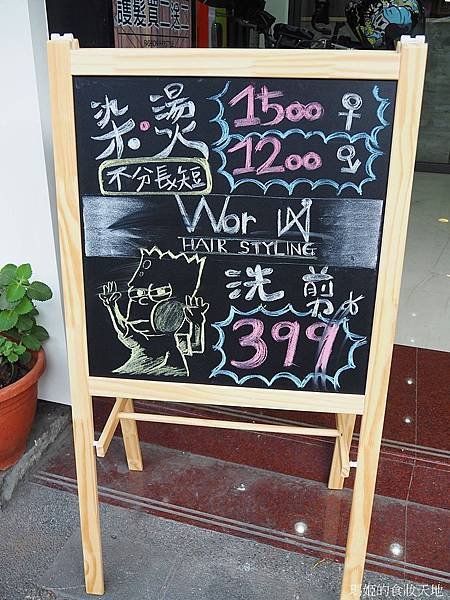 護髮買二送一
染·燙
1500 ♀
1200 ♂
不分長短
Wor 凶
HAIR STYLING
洗 剪
399
瑪姬的食妝天地